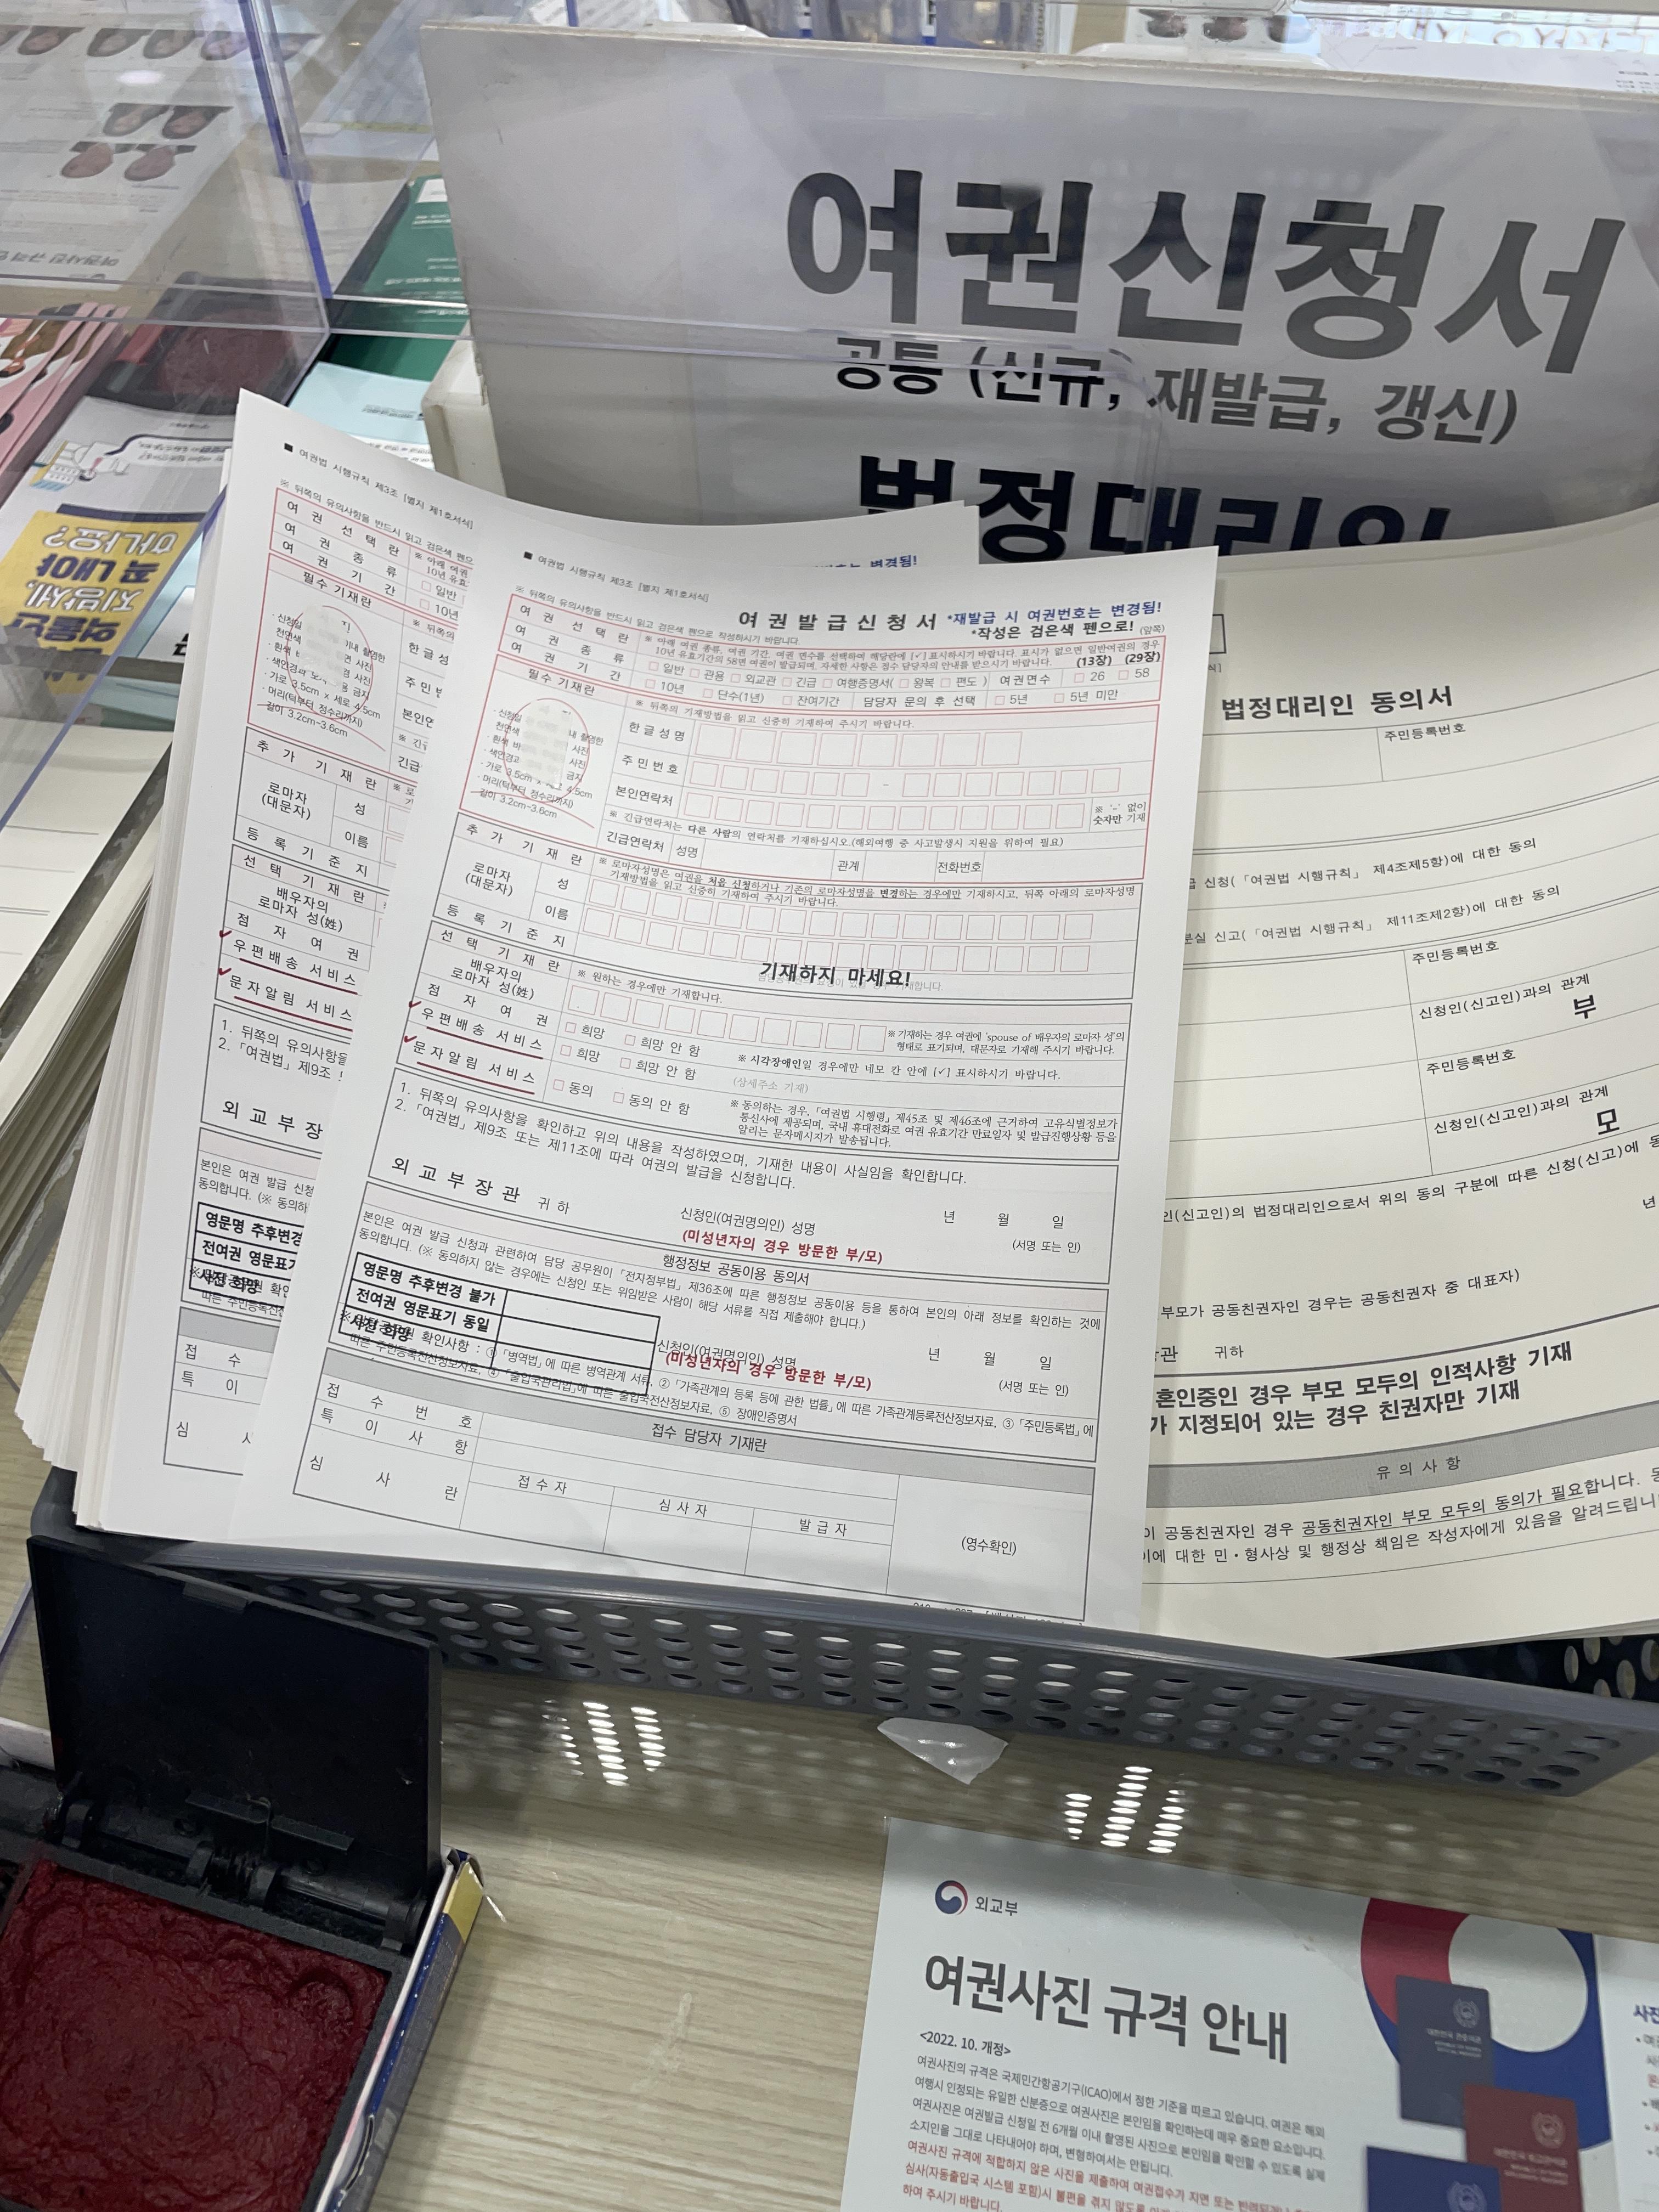 여권신청서
공통 (신규, 재발급, 갱신)
법정대리인
■ 여권법 시행규칙 제3조 [별지 제1호서식]
※ 뒤쪽의 유의사항을 반드시 읽고 검은색 펜으
여 권 선 택 란
여 권 종 류
여 권 기 간
※ 아래 여권
10년 유효
□ 일반
□ 10년
필수 기재란
한 글 성
주 민 번
본인연
긴급
추 가 기 재 란
로마자
(대문자)
성
이름
등 록 기 준 지
선 택 기 재 란
배우자의
로마자 성(姓)
점 자 여 권
우 편 배 송 서 비 스
문 자 알 림 서 비 스
1. 뒤쪽의 유의사항을
2. 「여권법」 제9조
외 교 부 장
본인은 여권 발급 신청
동의합니다. (※ 동의하
영문명 추후변경
전여권 영문표기
사진 희망
접 수
특 이
심 사
■ 여권법 시행규칙 제3조 [별지 제1호서식]
여 권 발 급 신 청 서 *재발급 시 여권번호는 변경됨!
*작성은 검은색 펜으로! (앞쪽)
※ 뒤쪽의 유의사항을 반드시 읽고 검은색 펜으로 작성하시기 바랍니다
여 권 선 택 란 ※ 아래 여권 종류, 여권 기간, 여권 면수를 선택하여 해당란에 [✓] 표시하시기 바랍니다. 표시가 없으면 일반여권의 경우
10년 유효기간의 58면 여권이 발급되며, 자세한 사항은 접수 담당자의 안내를 받으시기 바랍니다. (13장) (29장)
여 권 종 류 □ 일반 □ 관용 □ 외교관 □ 긴급 □ 여행증명서( □ 왕복 □ 편도 ) 여권면수 □ 26 □ 58
여 권 기 간 □ 10년 □ 단수(1년) □ 잔여기간 담당자 문의 후 선택 □ 5년 □ 5년 미만
필수 기재란 ※ 뒤쪽의 기재방법을 읽고 신중히 기재하여 주시기 바랍니다.
한글성명
주민번호 -
본인연락처 ※ '-' 없이
숫자만 기재
· 가로 3.5cm x 세로 4.5cm
· 머리(턱부터 정수리까지)
길이 3.2cm~3.6cm
※ 긴급연락처는 다른 사람의 연락처를 기재하십시오.(해외여행 중 사고발생시 지원을 위하여 필요)
긴급연락처 성명 관계 전화번호
추 가 기 재 란 ※ 로마자성명은 여권을 처음 신청하거나 기존의 로마자성명을 변경하는 경우에만 기재하시고, 뒤쪽 아래의 로마자성명
기재방법을 읽고 신중히 기재하여 주시기 바랍니다.
로마자
(대문자)
성
이름
등 록 기 준 지 기재하지 마세요!
선 택 기 재 란 ※ 원하는 경우에만 기재합니다.
배우자의
로마자 성(姓) ※ 기재하는 경우 여권에 'spouse of 배우자의 로마자 성'의
형태로 표기되며, 대문자로 기재해 주시기 바랍니다.
점 자 여 권 □ 희망 □ 희망 안 함 ※ 시각장애인일 경우에만 네모 칸 안에 [✓] 표시하시기 바랍니다.
우 편 배 송 서 비 스 □ 희망 □ 희망 안 함 (상세주소 기재)
문 자 알 림 서 비 스 □ 동의 □ 동의 안 함 ※ 동의하는 경우, 「여권법 시행령」 제45조 및 제46조에 근거하여 고유식별정보가
통신사에 제공되며, 국내 휴대전화로 여권 유효기간 만료일자 및 발급진행상황 등을
알리는 문자메시지가 발송됩니다.
1. 뒤쪽의 유의사항을 확인하고 위의 내용을 작성하였으며, 기재한 내용이 사실임을 확인합니다.
2. 「여권법」 제9조 또는 제11조에 따라 여권의 발급을 신청합니다.
년 월 일
외 교 부 장 관 귀 하 신청인(여권명의인) 성명 (서명 또는 인)
(미성년자의 경우 방문한 부/모)
행정정보 공동이용 동의서
본인은 여권 발급 신청과 관련하여 담당 공무원이 「전자정부법」 제36조에 따른 행정정보 공동이용 등을 통하여 본인의 아래 정보를 확인하는 것에
동의합니다. (※ 동의하지 않는 경우에는 신청인 또는 위임받은 사람이 해당 서류를 직접 제출해야 합니다.)
영문명 추후변경 불가
전여권 영문표기 동일
사진 희망
년 월 일
신청인(여권명의인) 성명 (서명 또는 인)
(미성년자의 경우 방문한 부/모)
확인사항 : ① 「병역법」에 따른 병역관계 서류, ② 「가족관계의 등록 등에 관한 법률」에 따른 가족관계등록전산정보자료, ③ 「주민등록법」에
따른 주민등록전산정보자료, ④ 「출입국관리법」에 따른 출입국전산정보자료, ⑤ 장애인증명서
접수 담당자 기재란
접 수 번 호
특 이 사 항
심 사 란 접 수 자 심 사 자 발 급 자 (영수확인)
법정대리인 동의서
주민등록번호
급 신청(「여권법 시행규칙」 제4조제5항)에 대한 동의
분실 신고(「여권법 시행규칙」 제11조제2항)에 대한 동의
주민등록번호
신청인(신고인)과의 관계
부
주민등록번호
신청인(신고인)과의 관계
모
인(신고인)의 법정대리인으로서 위의 동의 구분에 따른 신청(신고)에 동
년
부모가 공동친권자인 경우는 공동친권자 중 대표자)
장관 귀하
혼인중인 경우 부모 모두의 인적사항 기재
가 지정되어 있는 경우 친권자만 기재
유 의 사 항
이 공동친권자인 경우 공동친권자인 부모 모두의 동의가 필요합니다.
이에 대한 민·형사상 및 행정상 책임은 작성자에게 있음을 알려드립니
외교부
여권사진 규격 안내
<2022. 10. 개정>
여권사진의 규격은 국제민간항공기구(ICAO)에서 정한 기준을 따르고 있습니다. 여권은 해외
여행시 인정되는 유일한 신분증으로 여권사진은 본인임을 확인하는데 매우 중요한 요소입니다.
여권사진은 여권발급 신청일 전 6개월 이내 촬영된 사진으로 본인임을 확인할 수 있도록 실제
소지인을 그대로 나타내어야 하며, 변형하여서는 안됩니다.
여권사진 규격에 적합하지 않은 사진을 제출하여 여권접수가 지연 또는 반려되거나
심사(자동출입국 시스템 포함)시 불편을 겪지 않도록
하여 주시기 바랍니다.